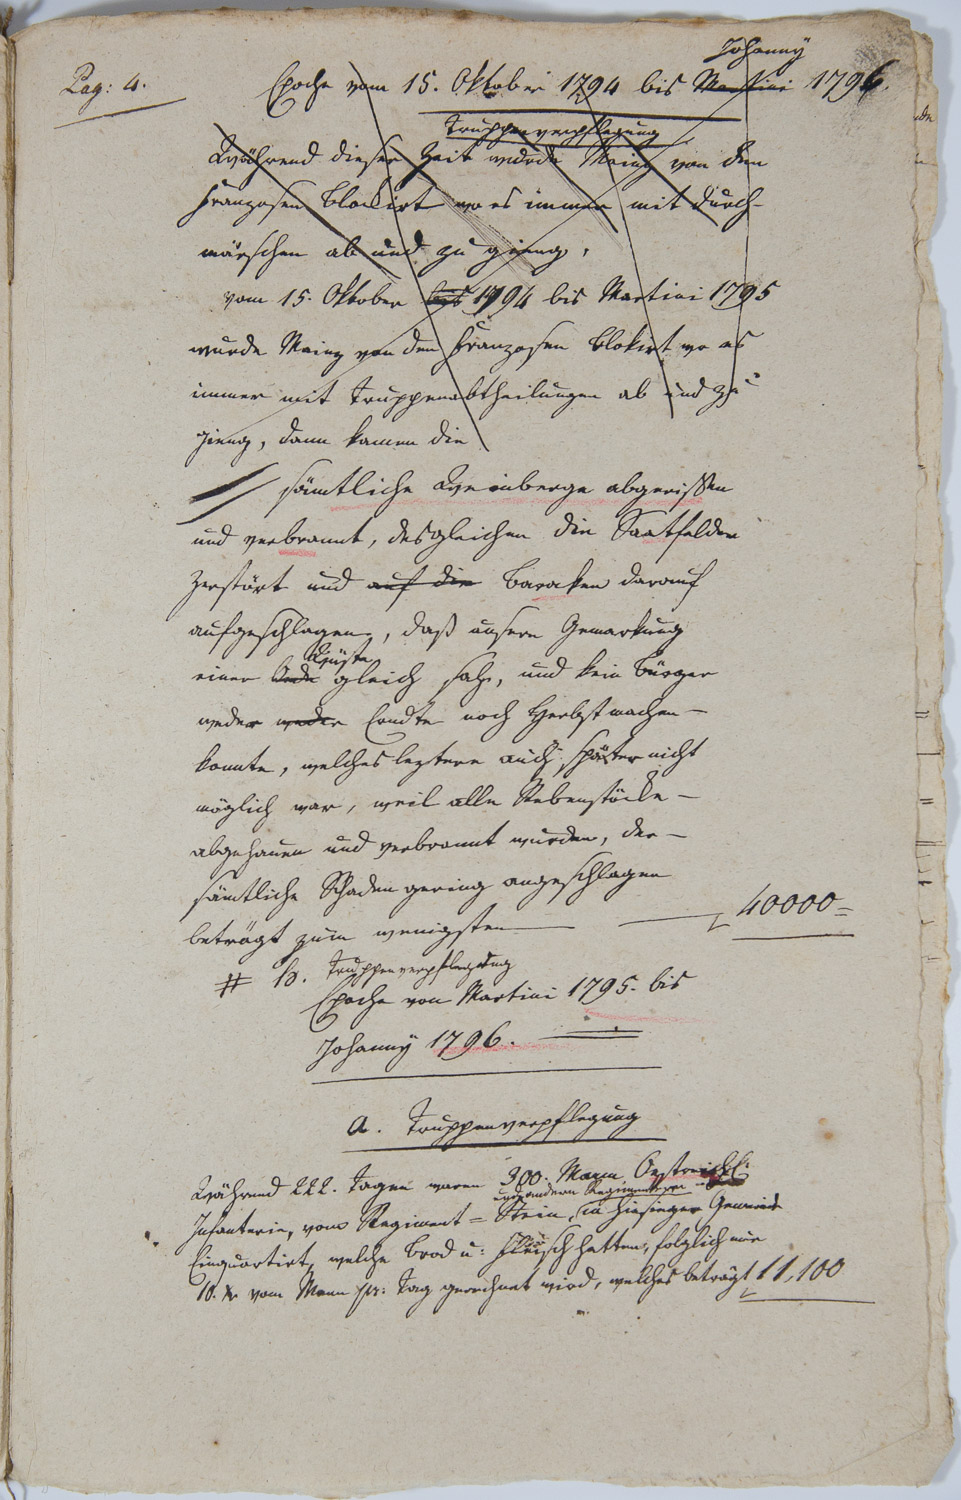 Johanny
Pag: 4. Epoche vom 15. Oktober 1794 bis Martini 1796.
Truppenverpflegung
Während dieser Zeit wurde Mainz von den
Franzosen blockirt wo es immer mit Durch-
märschen ab und zu gieng,
vom 15. Oktober bis 1794 bis Martini 1795
wurde Mainz von den Franzosen blokirt wo es
immer mit Truppenabtheilungen ab und zu
gieng, dann kamen die
// sämtliche Weinberge abgerissen
und verbrannt, desgleichen die Saatfelder
zerstört und auf die Baraken darauf
aufgeschlagen, daß unsere Gemarkung
Wüste
einer Oede gleich sah, und kein Bürger
weder weder Erndte noch Herbst machen
konnte, welches leztere auch später nicht
möglich war, weil alle Rebenstöcke
abgehauen und verbrannt wurden, der
sämtliche Schaden gering angeschlagen
beträgt zum wenigsten — 40000=
# b. Truppenverpflegung
Epoche von Martini 1795. bis
Johanny 1796.
a. Truppenverpflegung
Während 222. Tagen waren 300. Mann Oestreichl:
und andern Regimentern
Infanterie, vom Regiment = Stein, in hiesiger Gemeinde
Einquartirt, welche Brod u: Fleisch hatten, folglich nur
10. xr vom Mann pr: Tag gerechnet wird, welches beträgt 11,100